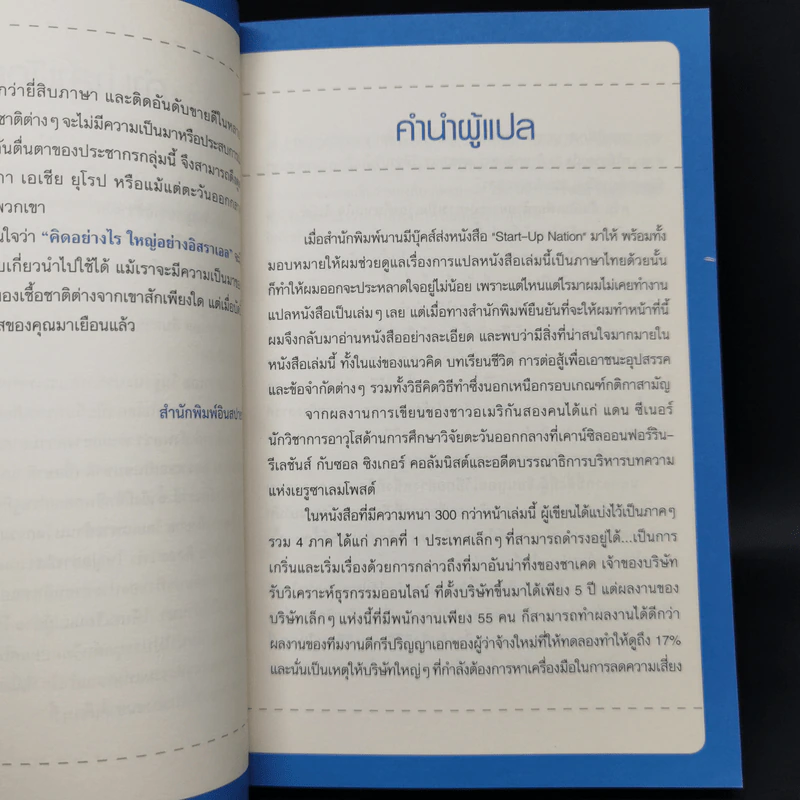 กว่ายี่สิบภาษา และติดอันดับขายดีใน
ชาติต่างๆ จะไม่มีความเป็นมาหรือ
ันตื่นตาของประชากรกลุ่มนี้ จึงสามารถ
กา เอเชีย ยุโรป หรือแม้แต่ตะวันออก
พวกเขา
นใจว่า "คิดอย่างไร ใหญ่อย่างอิสราเอล"
บเกี่ยวนำไปใช้ได้ แม้เราจะมีความเป็นมา
ของเชื้อชาติต่างจากเขาสักเพียงใด แต่เมื่อ
สของคุณมาเยือนแล้ว
สำนักพิมพ์อินสปาย
คำนำผู้แปล
เมื่อสำนักพิมพ์นานมีบุ๊คส์ส่งหนังสือ "Start-Up Nation" มาให้ พร้อมทั้ง
มอบหมายให้ผมช่วยดูแลเรื่องการแปลหนังสือเล่มนี้เป็นภาษาไทยด้วยนั้น
ก็ทำให้ผมออกจะประหลาดใจอยู่ไม่น้อย เพราะแต่ไหนแต่ไรมาผมไม่เคยทำงาน
แปลหนังสือเป็นเล่มๆ เลย แต่เมื่อทางสำนักพิมพ์ยืนยันที่จะให้ผมทำหน้าที่นี้
ผมจึงกลับมาอ่านหนังสืออย่างละเอียด และพบว่ามีสิ่งที่น่าสนใจมากมายใน
หนังสือเล่มนี้ ทั้งในแง่ของแนวคิด บทเรียนชีวิต การต่อสู้เพื่อเอาชนะอุปสรรค
และข้อจำกัดต่างๆ รวมทั้งวิธีคิดวิธีทำซึ่งนอกเหนือกรอบเกณฑ์กติกาสามัญ
จากผลงานการเขียนของชาวอเมริกันสองคนได้แก่ แดน ซีเนอร์
นักวิชาการอาวุโสด้านการศึกษาวิจัยตะวันออกกลางที่เคาน์ซิลออนฟอร์ริน-
รีเลชันส์ กับซอล ซิงเกอร์ คอลัมนิสต์และอดีตบรรณาธิการบริหารบทความ
แห่งเยรูซาเลมโพสต์
ในหนังสือที่มีความหนา 300 กว่าหน้าเล่มนี้ ผู้เขียนได้แบ่งไว้เป็นภาคๆ
รวม 4 ภาค ได้แก่ ภาคที่ 1 ประเทศเล็กๆ ที่สามารถดำรงอยู่ได้...เป็นการ
เกริ่นและเริ่มเรื่องด้วยการกล่าวถึงที่มาอันน่าทึ่งของชาเคด เจ้าของบริษัท
รับวิเคราะห์ธุรกรรมออนไลน์ ที่ตั้งบริษัทขึ้นมาได้เพียง 5 ปี แต่ผลงานของ
บริษัทเล็กๆ แห่งนี้ที่มีพนักงานเพียง 55 คน ก็สามารถทำผลงานได้ดีกว่า
ผลงานของทีมงานดีกรีปริญญาเอกของผู้ว่าจ้างใหม่ที่ให้ทดลองทำให้ดูถึง 17%
และนั่นเป็นเหตุให้บริษัทใหญ่ๆ ที่กำลังต้องการหาเครื่องมือในการลดความเสี่ยง